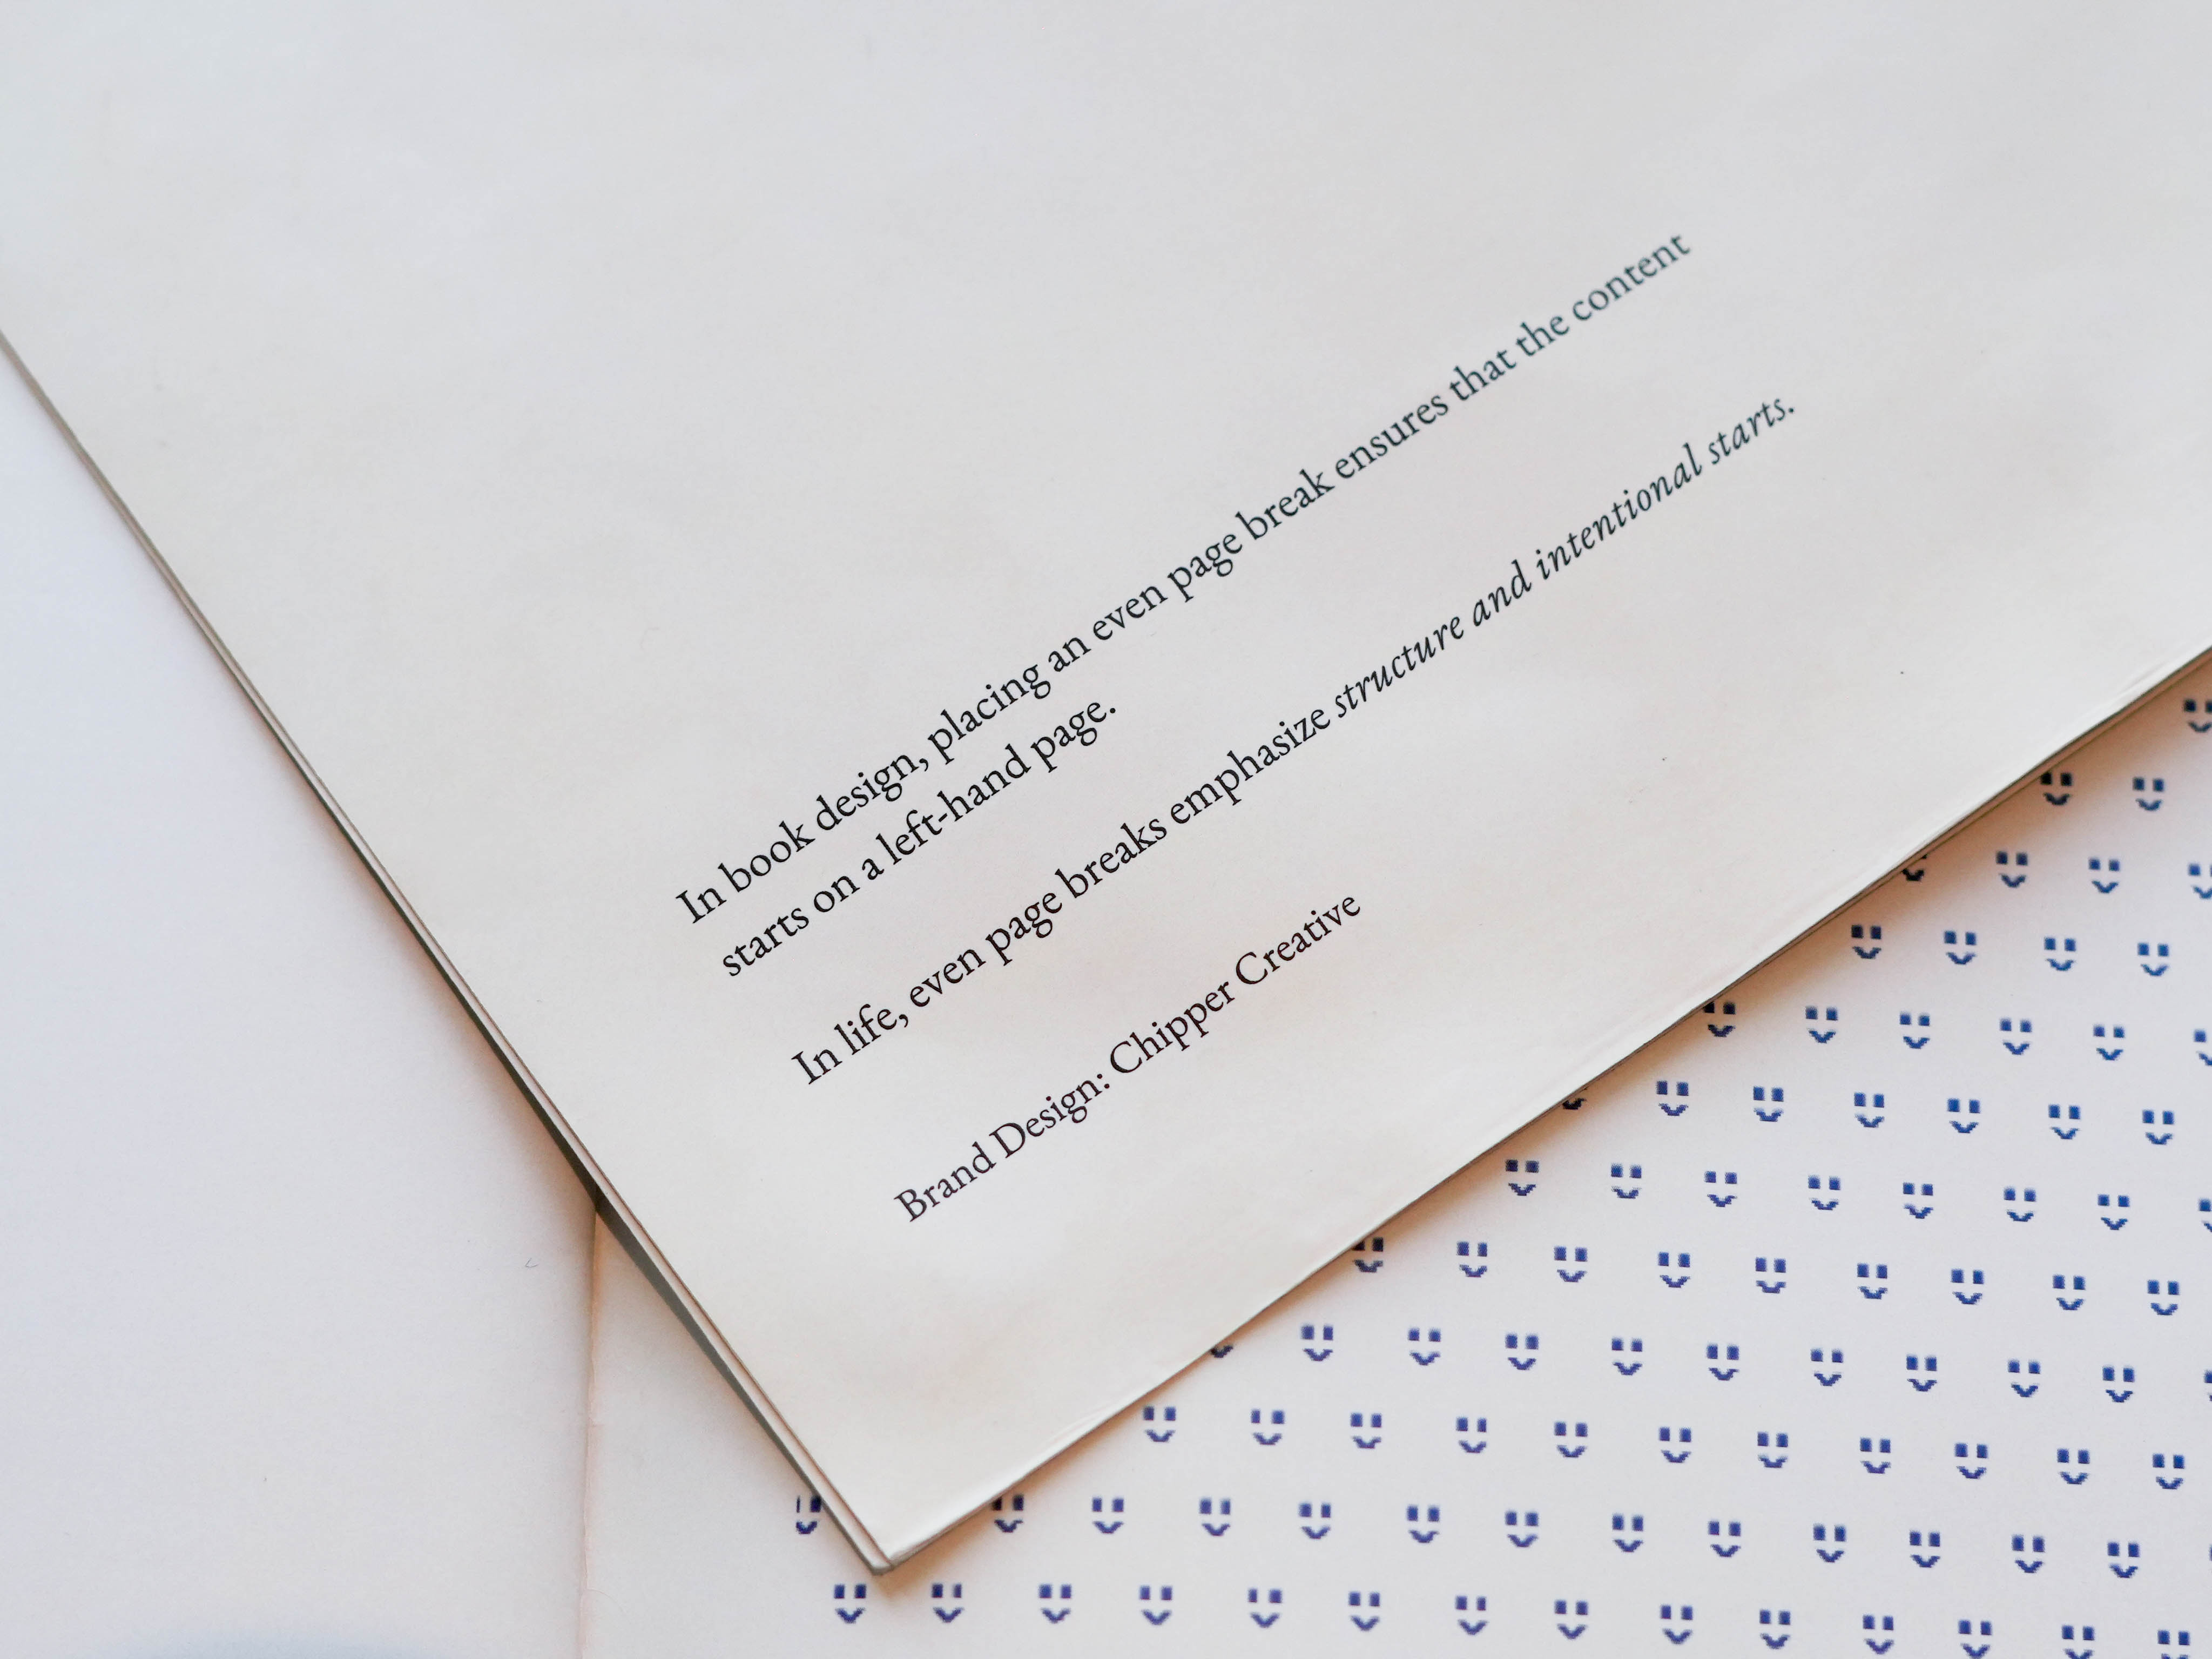 In book design, placing an even page break ensures that the content
starts on a left-hand page.
In life, even page breaks emphasize structure and intentional starts.
Brand Design: Chipper Creative